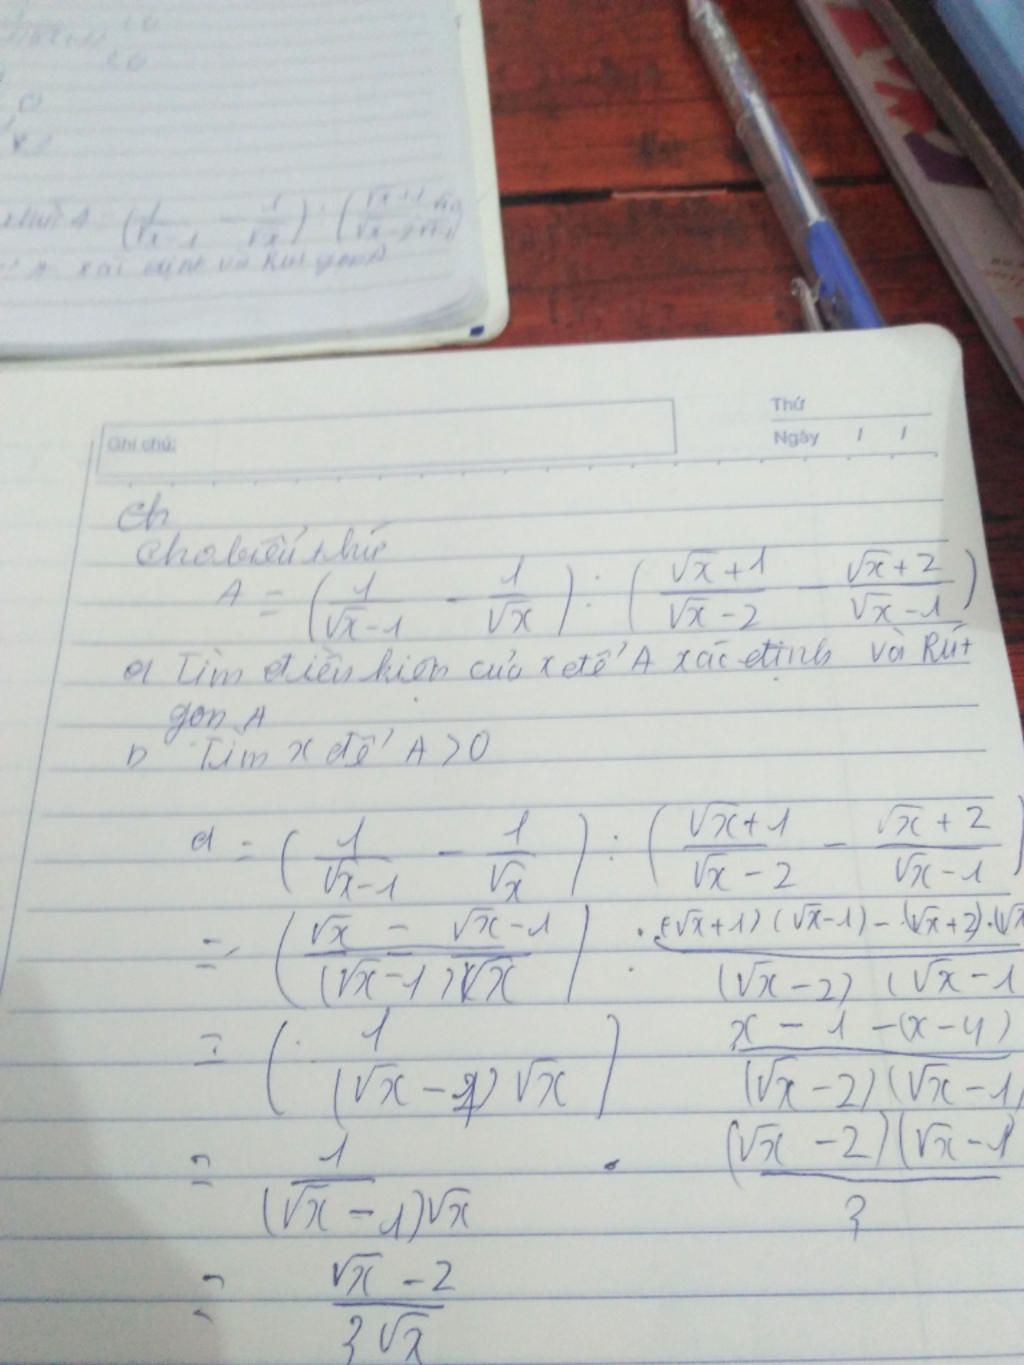 A (1/√x-1 - 1/√x) : (
A xác định và Rút gọn A
Ghi chú:
Thứ
Ngày / /
Ch
Cho biểu thức
A = (1/(√x-1) - 1/√x) : ((√x+1)/(√x-2) - (√x+2)/(√x-1))
a Tìm điều kiện của x để A xác định và Rút
gọn A
b Tìm x để A>0
a = (1/(√x-1) - 1/√x) : ((√x+1)/(√x-2) - (√x+2)/(√x-1))
= ((√x - √x-1)/((√x-1)√x)) : ((√x+1)(√x-1) - (√x+2).(√x)/((√x-2)(√x-1)
= (1/((√x-1)√x)) (x-1-(x-4))/((√x-2)(√x-1)
= 1/((√x-1)√x) . ((√x-2)(√x-1)/3
= (√x-2)/(3√x)